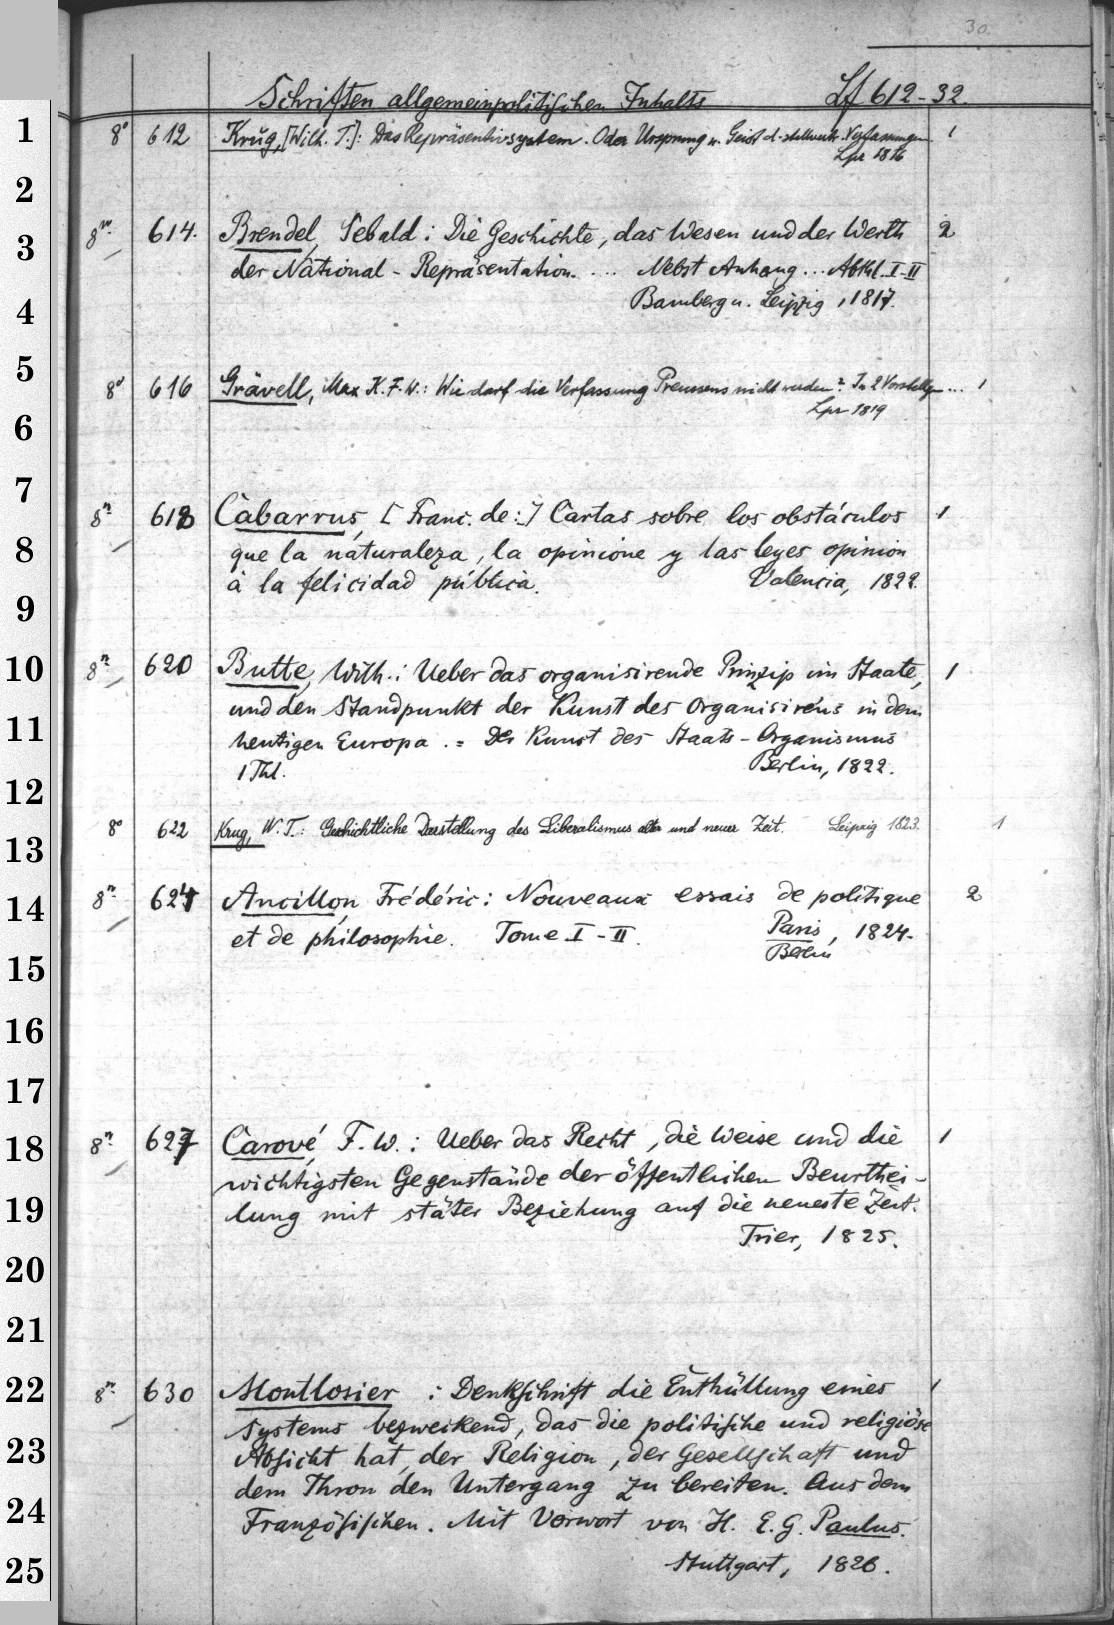 30.
Schriften allgemeinpolitischen Inhalts Lf 612-32
1 8° 612 Krug, [Wilh. T.]: Das Repräsentivsystem. Oder Ursprung u. Geist d. stellvertr. Verfassungen 1
Lpz 1816
2
3 8° 614. Brendel, Sebald: Die Geschichte, das Wesen und der Werth 2
der National-Repräsentation. ... Nebst Anhang... Abthl. I-II
4 Bamberg u. Leipzig, 1817.
5 8° 616 Grävell, Max K. F. W.: Wie darf die Verfassung Preussens nicht werden? In 2 Vorstellgn... 1
Lpz 1819
6
7 8° 618 Cabarrus, [Franc. de:] Cartas sobre los obstáculos 1
8 que la naturaleza, la opinione y las leyes opinion
9 à la felicidad pública. Valencia, 1822.
10 8° 620 Butte, Wilh.: Ueber das organisirende Prinzip im Staate, 1
und den Standpunkt der Kunst des Organisirens in dem
11 heutigen Europa. = Der Kunst des Staats-Organismus
1 Thl. Berlin, 1822.
12
13 8° 622 Krug, W. T.: Geschichtliche Darstellung des Liberalismus alter und neuer Zeit. Leipzig 1823. 1
14 8° 624 Ancillon, Frédéric: Nouveaux essais de politique 2
et de philosophie. Tome I-II. Paris, 1824.
15 Berlin
16
17
18 8° 627 Carové, F. W.: Ueber das Recht, die Weise und die 1
wichtigsten Gegenstände der öffentlichen Beurthei-
19 lung mit stäter Beziehung auf die neueste Zeit.
Trier, 1825.
20
21
22 8° 630 Montlosier : Denkschrift die Enthüllung eines 1
Systems bezweckend, das die politische und religiöse
23 Absicht hat, der Religion, der Gesellschaft und
dem Thron den Untergang zu bereiten. Aus dem
24 Französischen. Mit Vorwort von H. E. G. Paulus.
25 Stuttgart, 1826.